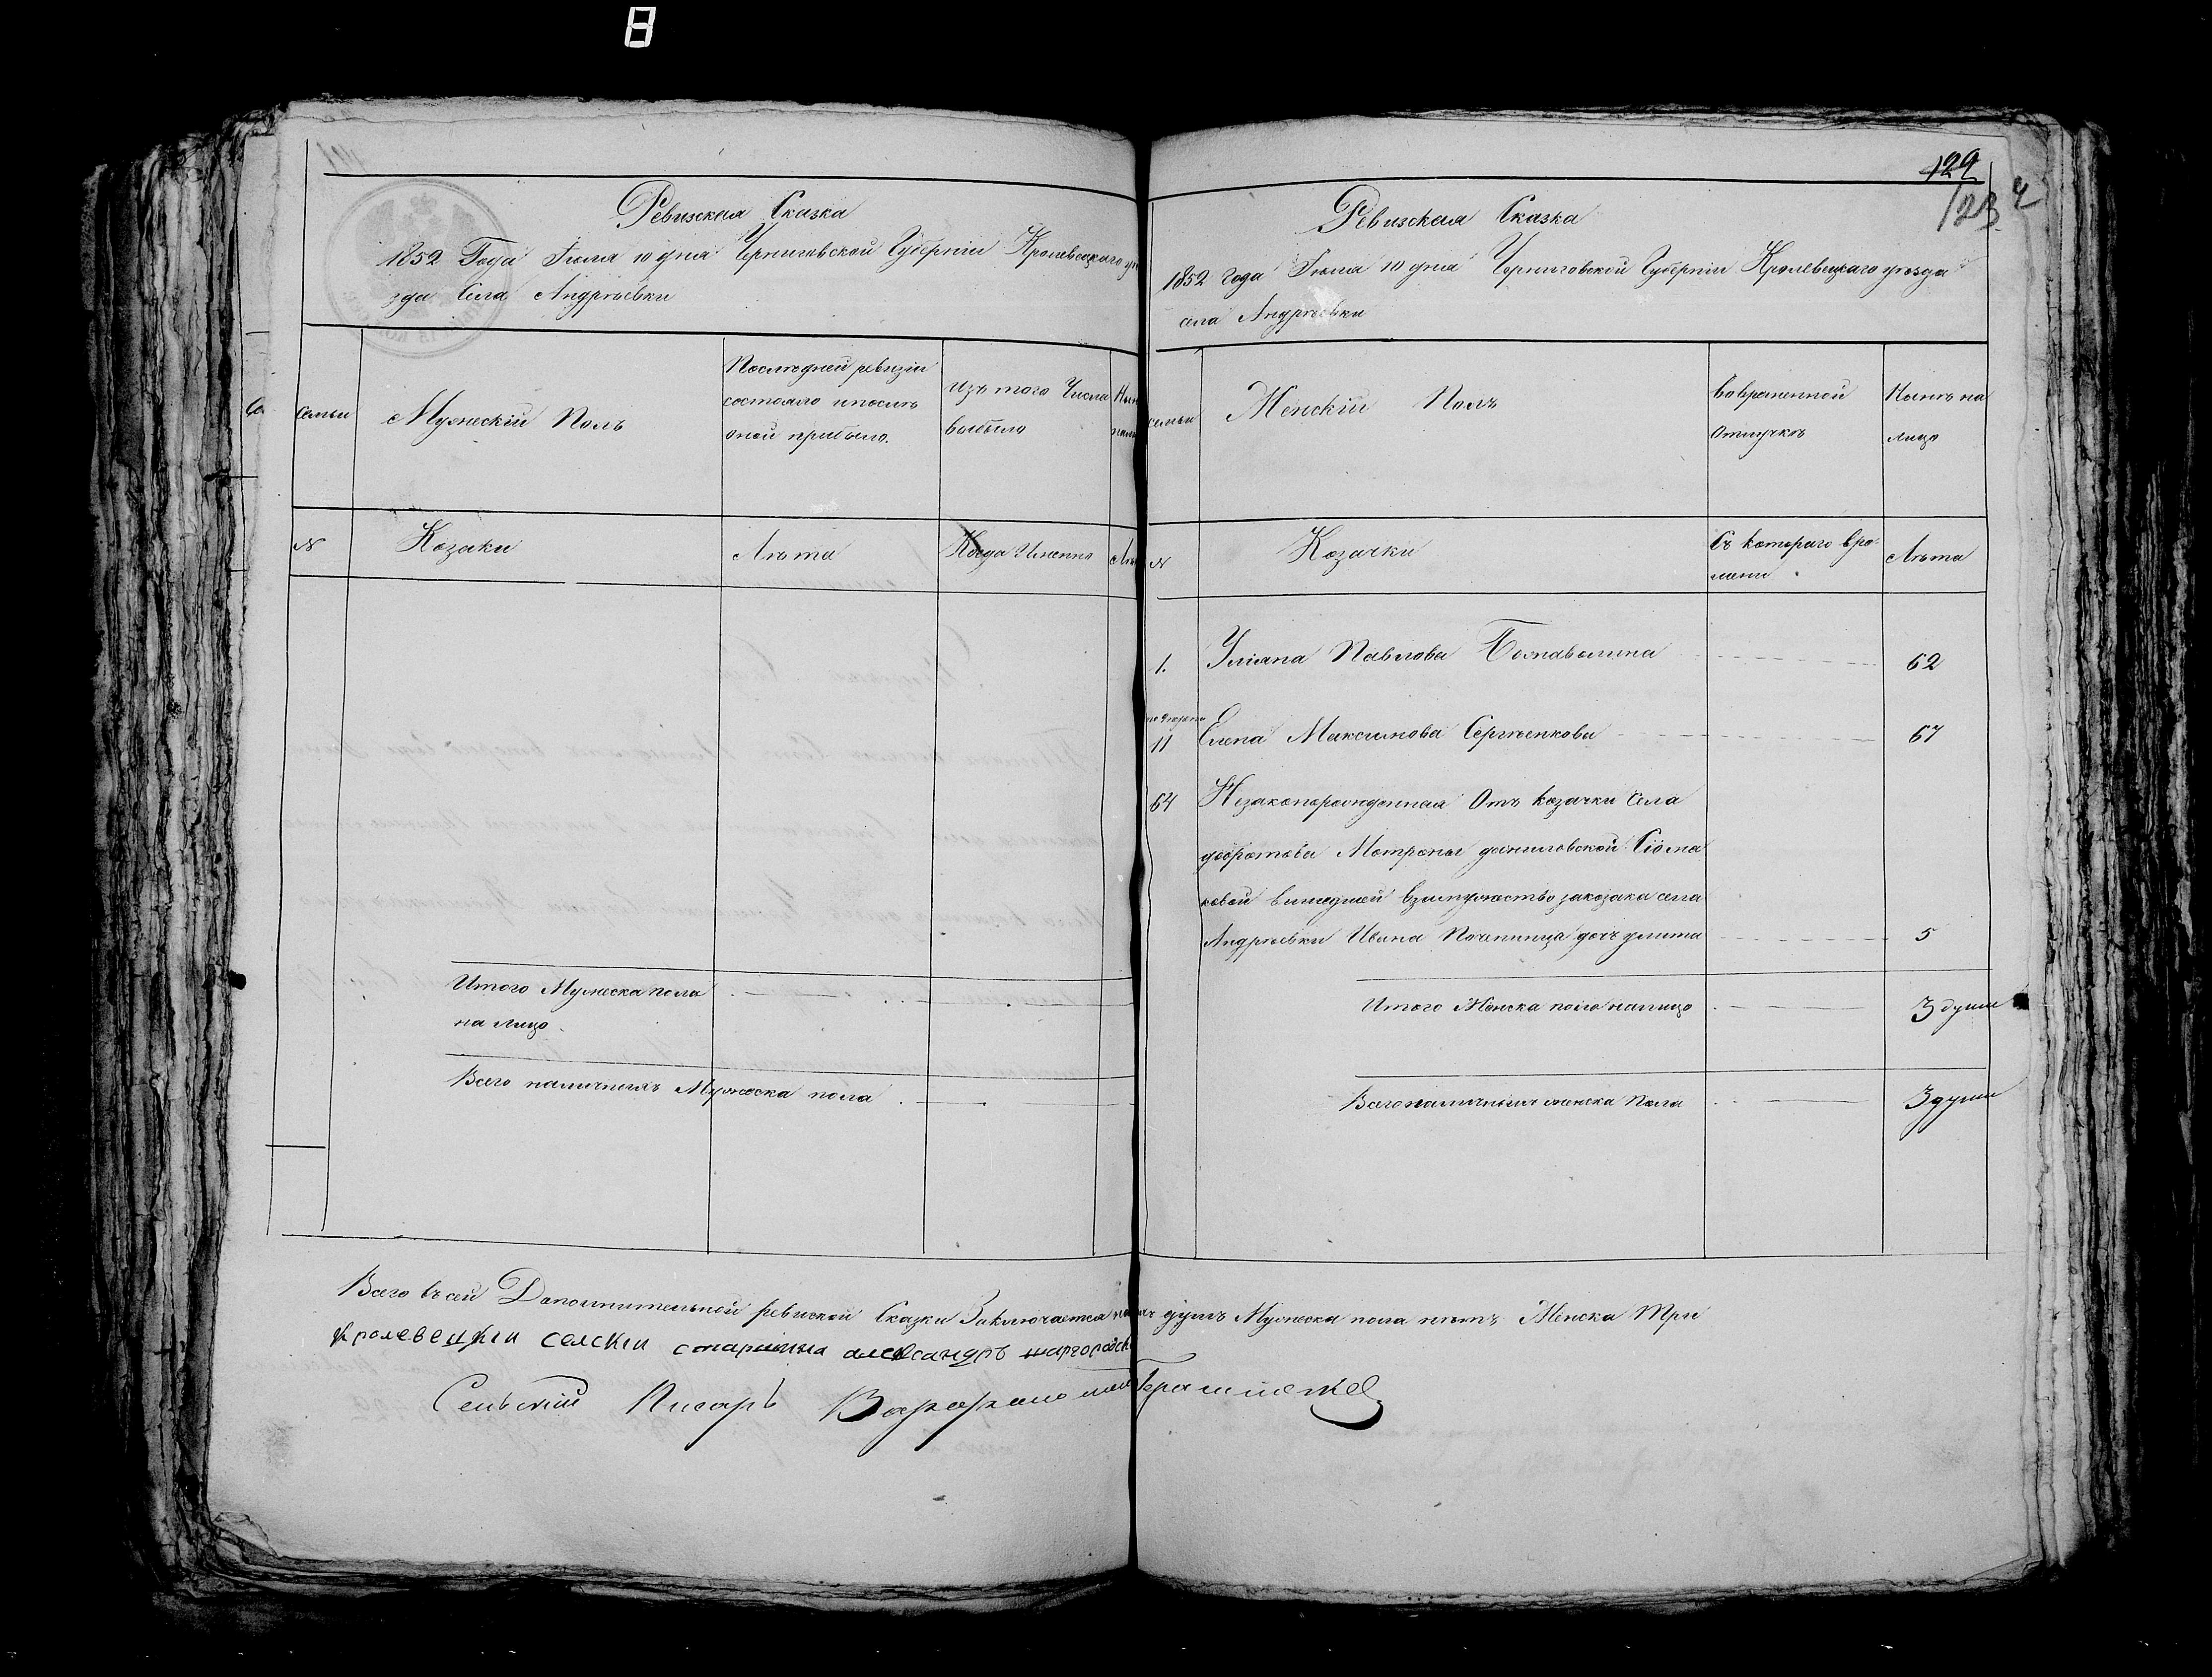 8
Ревизская Сказка
1852 Года Июля 10 дня Черниговской Губернiи Кролевецкаго уѣ
зда Села Андрѣевки
семьи
Мужескiй Полъ
Последней ревизiи
состояло ипослѣ
оной прибыло.
Изъ того Числа
выбыло
N
Козаки
Лѣта
Когда Именно
Итого Мужеска пола
на лицо.
Всего наличныхъ Мужеска пола
129
123
4
Ревизская Сказка
1852 Года Июля 10 дня Черниговской Губернiи Кролевецкаго уѣзда
села Андрѣевки
семьи
Женскiй Полъ
Вовременной
Отлучкѣ
Нынѣ на
лицо
N
Козачки
Съ котораго вре-
мени
Лѣта
1. Улiяна Павлова 62
11 Елена Максимова Сергѣенкова 67
64 Незаконорожденная Отъ козачки Села
Мотроны даниловской
ковой вишедшей взамужество закозака села
Андрѣевки Ивана дочь улита 5
Итого Женска пола налицо 3 души
Всего наличныхъ женска Пола 3 души
Всего въ сей Дополнительной ревизкой Сказки Заключается душъ Мужеска пола нѣтъ Женска Три
Кролевецкiи селскiи старшина александръ
Сельскiй Писарь